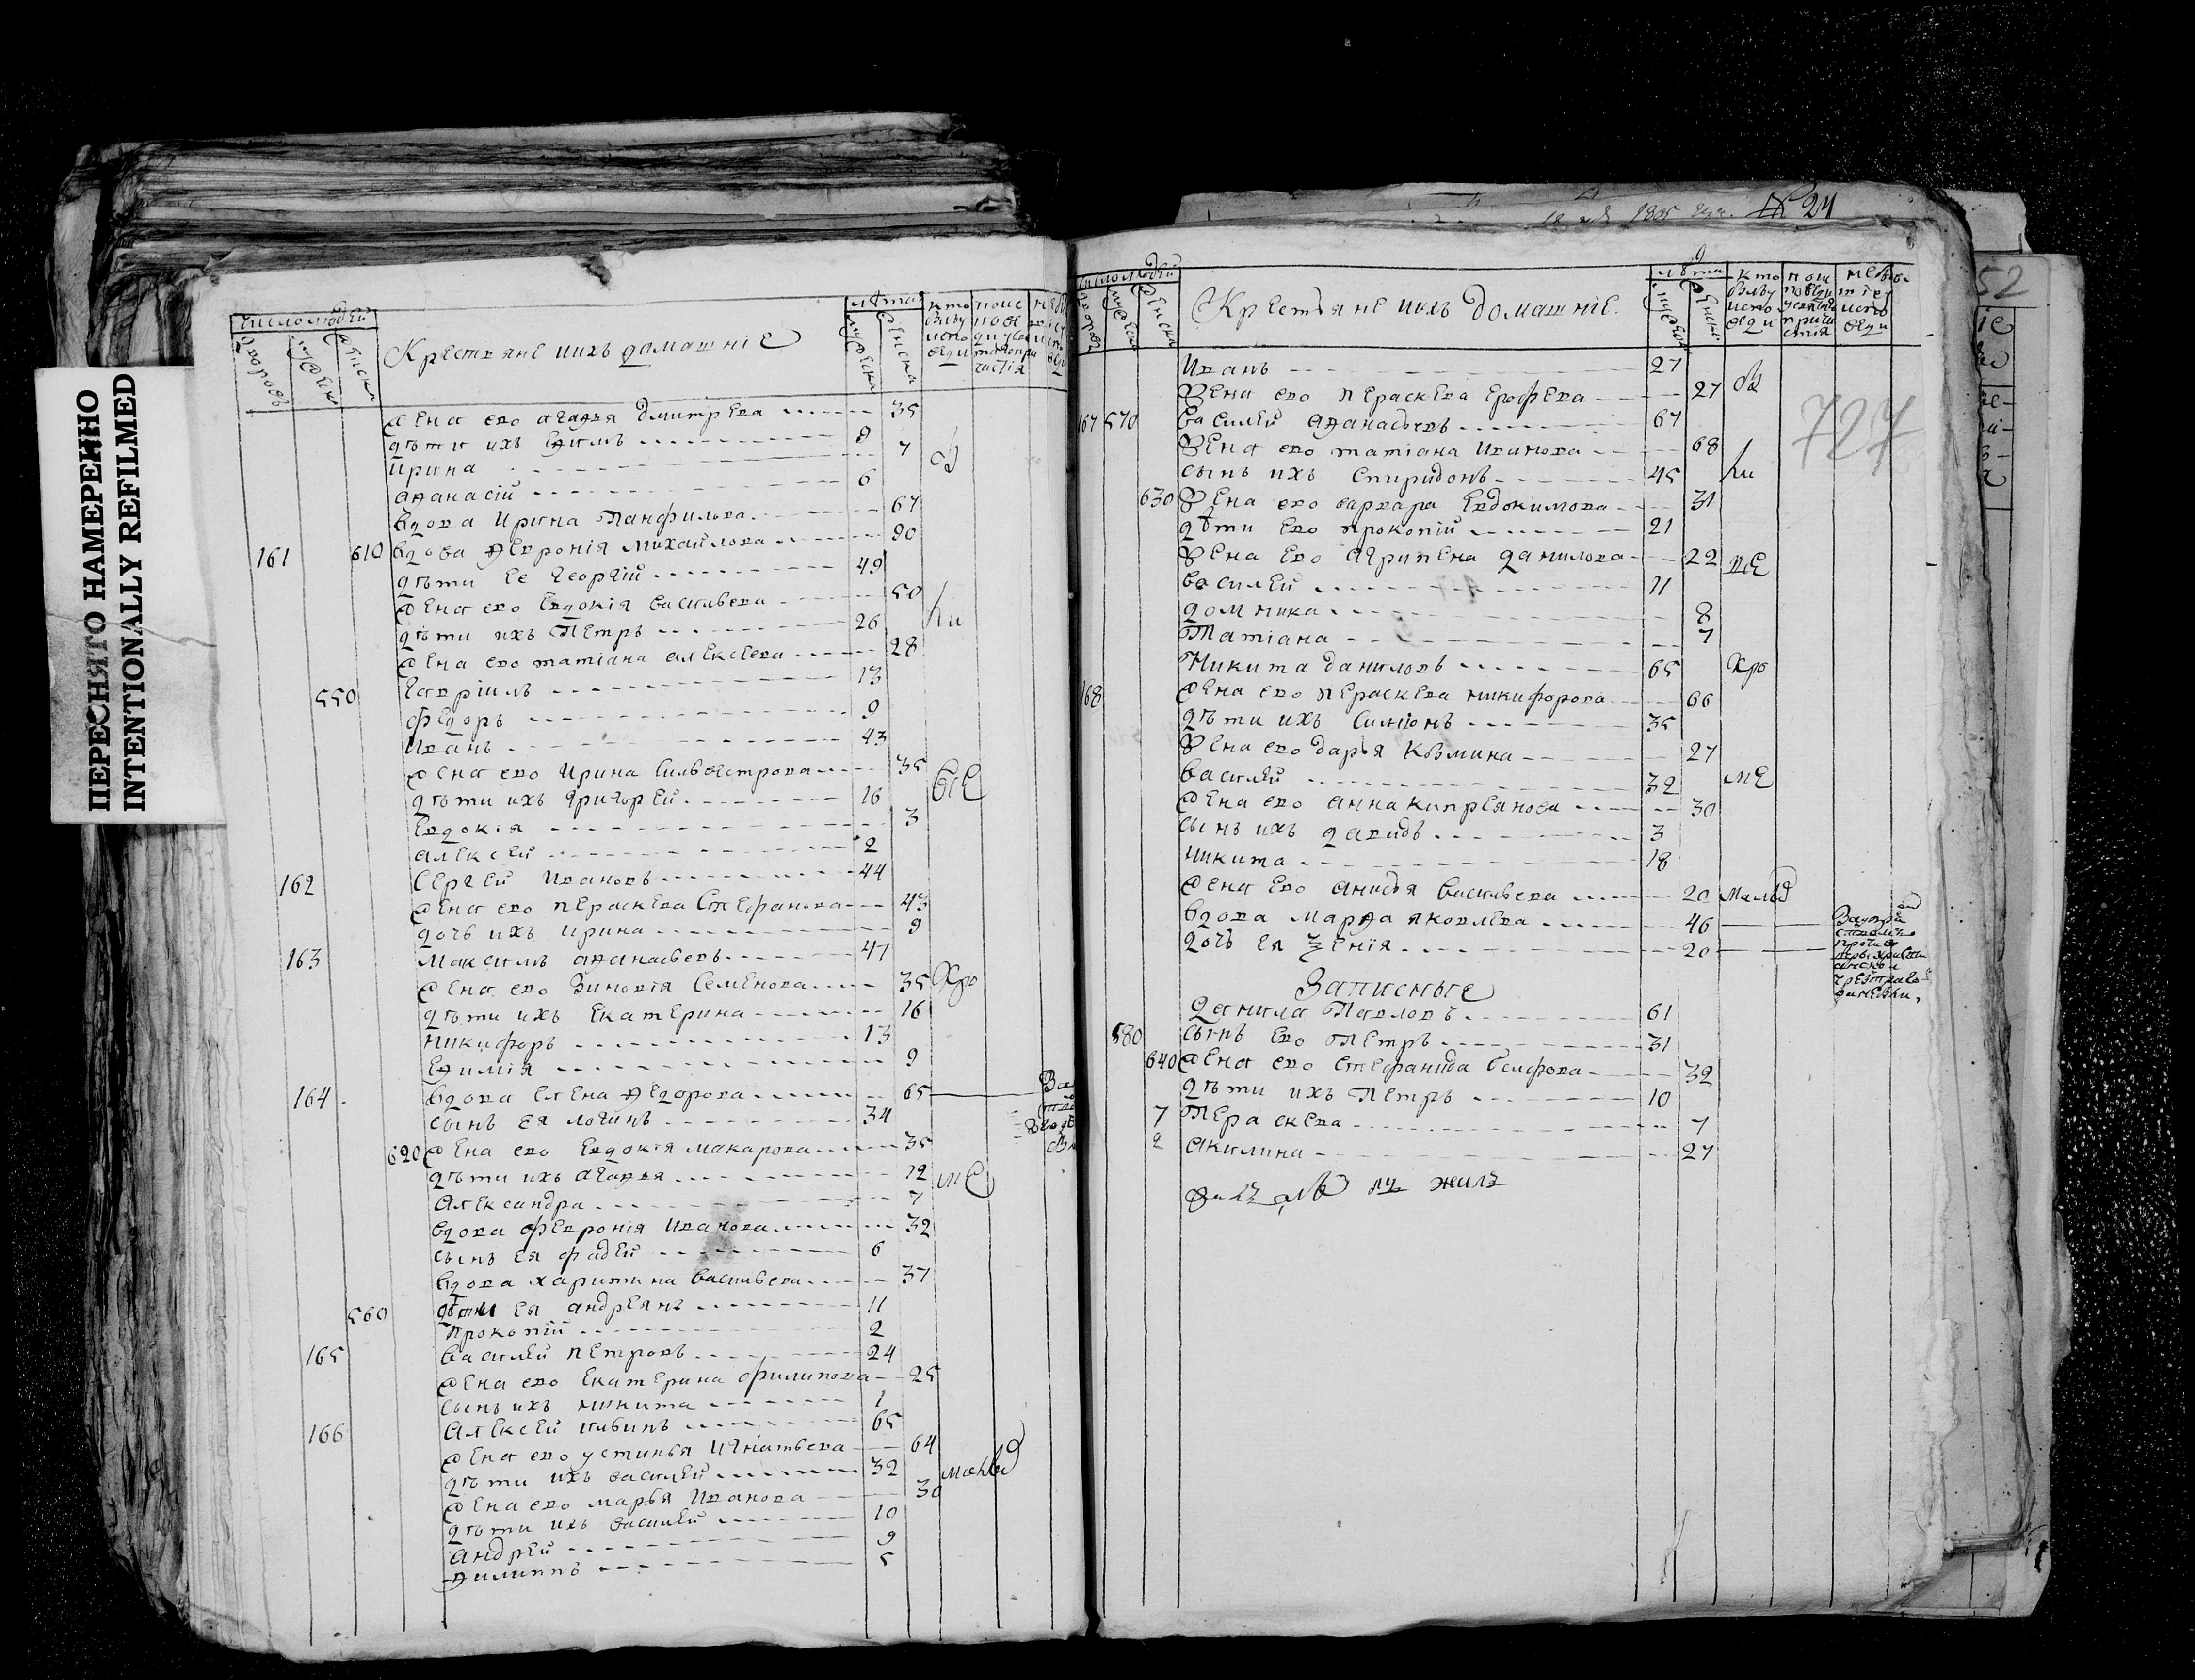 ПЕРЕСНЯТО НАМЕРЕННО
INTENTIONALLY REFILMED
число людей
дворовъ
мужеска
женска
Крестьяне и ихъ домашніе
лѣта
мужеска
женска
жена ево агаѳья дмитрева 35
дѣти ихъ Еѳимъ 9
Ирина 7
аѳанасій 6
вдова Ирина Панфилова 67
161 610 вдова Ѳевронія Михайлова 90
дѣти ее георгій 49
жена ево Евдокія васильева 50
дѣти ихъ Петръ 26
жена ево татіана алексеева 28
Гавріилъ 13
550 федоръ 9
Иванъ 43
жена ево Ирина Сильвестрова 35
дѣти ихъ григорей 16
Евдокія 3
алексей 2
162 Сергей Ивановъ 44
жена ево пераскева Стефанова 43
дочь ихъ ирина 9
163 Максимъ аѳанасьевъ 47
жена ево Зиновія Семенова 35
дѣти ихъ Екатерина 16
никифоръ 13
Еѳимія 9
164 вдова елена Ѳедорова 65
сынъ ея логинъ 34
620 жена ево Евдокія макарова 35
дѣти ихъ агаѳья 12
Александра 7
вдова февронія Иванова 32
сынъ ея фадей 6
вдова харитина васильева 37
560 дѣти ея андреянъ 11
Прокопій 2
165 василей петровъ 24
жена ево Екатерина филипова 25
сынъ ихъ никита 1
166 Алексей 65
жена ево устинья Игнатьева 64
дѣти ихъ василей 32
жена ево марья Иванова 30
дѣти ихъ василей 10
андрей 9
Ѳилиппъ 5
№ 24
число людей
дворовъ
мужеска
женска
Крестьяне ихъ домашніе
лѣта
мужеска
женска
727
Иванъ 27
жена ево пераскева Ерофева 27
167 570 василей Аѳанасьевъ 67
жена ево татіана Иванова 68
сынъ ихъ Спиридонъ 45
630 жена ево варвара Евдокимова 31
дѣти Ево прокопій 21
жена Ево агрипена данилова 22
василей 11
домника 8
Татіана 7
168 Никита даниловъ 65
жена ево пераскева никифорова 66
дѣти ихъ Симіонъ 35
жена ево дарья Козмина 27
василей 32
жена ево анна кипреянова 30
сынъ ихъ давидъ 3
никита 18
жена Ево анисья васильева 20
вдова Марѳа яковлева 46
дочь ея Ксенія 20
Записные
данила Павловъ 61
580 сынъ Ево Петръ 31
640 жена ево Стефанида 32
дѣти ихъ Петръ 10
7 Пераскева 7
2 акилина 27
52